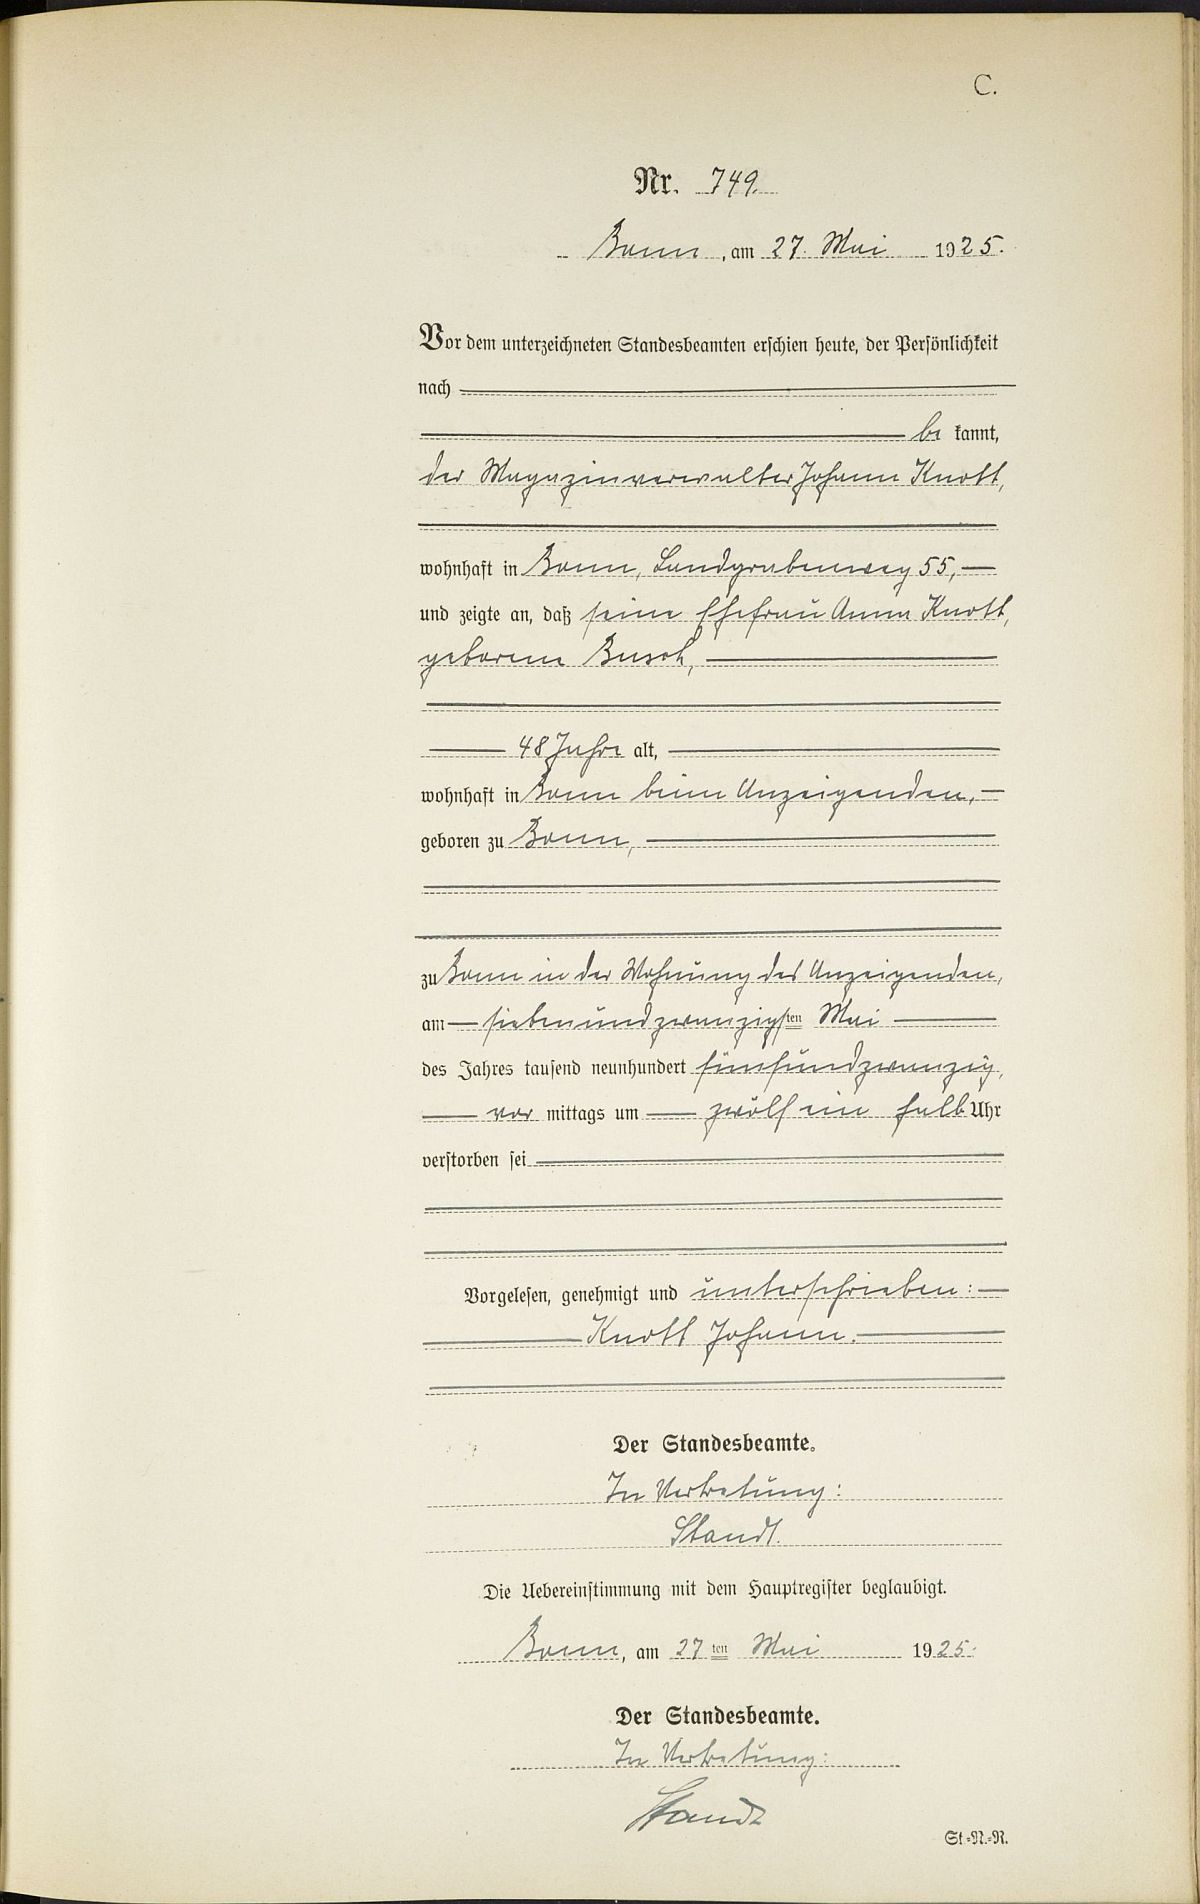 C.
Nr. 749.
Bonn, am 27. Mai 1925.
Vor dem unterzeichneten Standesbeamten erschien heute, der Persönlichkeit
nach
be kannt,
der Magazinverwalter Johann Knott,
wohnhaft in Bonn, Landgrabenweg 55,
und zeigte an, daß seine Ehefrau Anna Knott,
geborene Busch,
48 Jahre alt,
wohnhaft in Bonn beim Anzeigenden,
geboren zu Bonn,
zu Bonn in der Wohnung des Anzeigenden,
am siebenundzwanzigsten Mai
des Jahres tausend neunhundert fünfundzwanzig,
vor mittags um zwölf ein halb Uhr
verstorben sei
Vorgelesen, genehmigt und unterschrieben:
Knott Johann.
Der Standesbeamte.
In Vertretung:
Standt.
Die Uebereinstimmung mit dem Hauptregister beglaubigt.
Bonn, am 27ten Mai 1925.
Der Standesbeamte.
In Vertretung:
Standt
St.-N.-R.